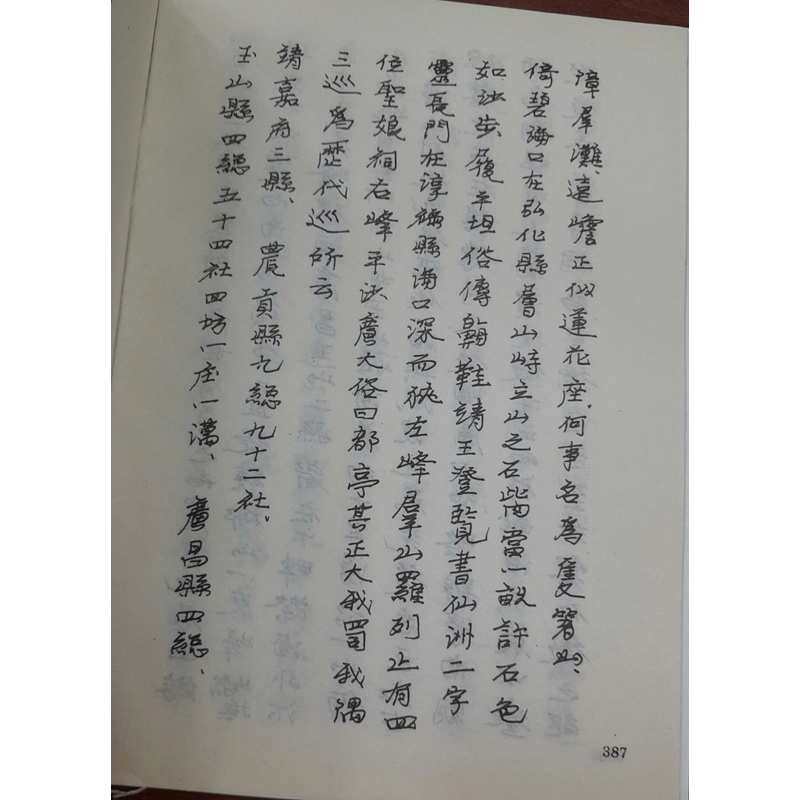 漳羣灘、遠嶦正似蓮花座、何事名爲隻箸山、
倚碧海口在弘化縣層山峙立山之石㟮當一畝許石色
如渋步履平坦俗傳鞋靖王登覽書仙洲二字
靈長門在諄祿縣海口深而狹左峰羣山羅列上有四
位聖娘祠右峰平渋廣大俗曰都亭其正大我蜀我隅
三巡爲歷代巡所云
靖嘉府三縣、農貢縣九總九十二社、
玉山縣四總五十四社四坊一庄、一滿、廣昌縣四總、
387